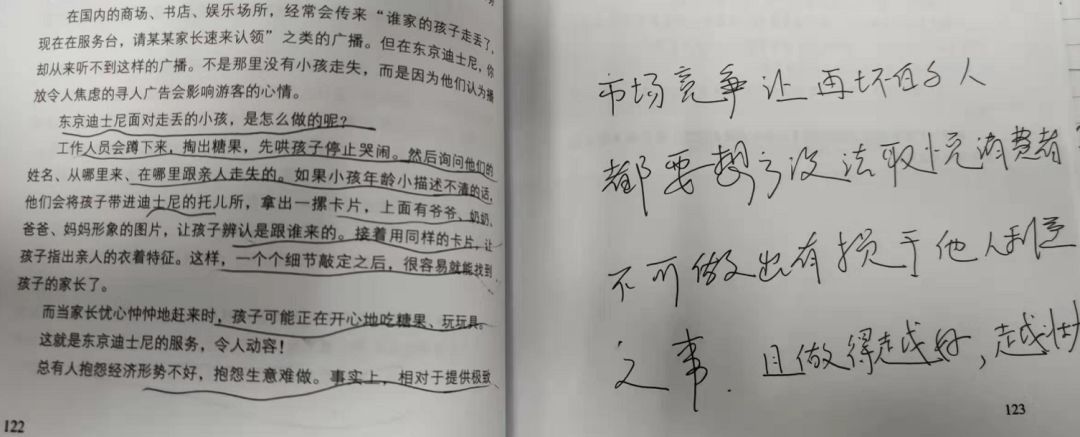 在国内的商场、书店、娱乐场所，经常会传来“谁家的孩子走丢了，
现在在服务台，请某某家长速来认领”之类的广播。但在东京迪士尼，你
却从来听不到这样的广播。不是那里没有小孩走失，而是因为他们认为播
放令人焦虑的寻人广告会影响游客的心情。
东京迪士尼面对走丢的小孩，是怎么做的呢？
工作人员会蹲下来，掏出糖果，先哄孩子停止哭闹。然后询问他们的
姓名、从哪里来、在哪里跟亲人走失的。如果小孩年龄小描述不清的话，
他们会将孩子带进迪士尼的托儿所，拿出一摞卡片，上面有爷爷、奶奶、
爸爸、妈妈形象的图片，让孩子辨认是跟谁来的。接着用同样的卡片，让
孩子指出亲人的衣着特征。这样，一个个细节敲定之后，很容易就能找到
孩子的家长了。
而当家长忧心忡忡地赶来时，孩子可能正在开心地吃糖果、玩玩具。
这就是东京迪士尼的服务，令人动容！
总有人抱怨经济形势不好，抱怨生意难做。事实上，相对于提供极致
122
市场竞争让再坏的人
都要想方设法取悦消费者
不可做出有损于他人利益
之事.且做得越好,越
123